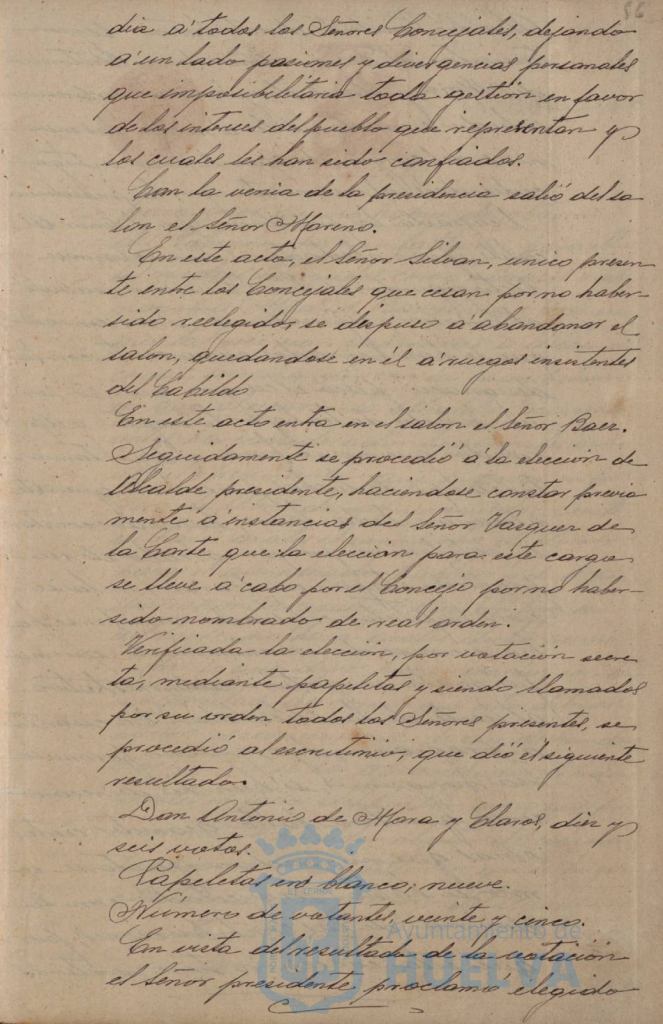 56
dia á todos los Señores Concejales, dejando
á un lado pasiones y divergencias personales
que imposibilitaria toda gestión en favor
de los intereses del pueblo que representan y
los cuales les han sido confiados.
Con la venia de la presidencia salió del sa
lon el Señor Moreno.
En este acto, el Señor Silvan, unico presen
te entre los Concejales que cesan por no haber
sido reelegidos, se dispuso á abandonar el
salon, quedandose en él á ruegos insistentes
del Cabildo
En este acto entra en el salon el Señor Baez.
Seguidamente se procedió á la elección de
Alcalde presidente, haciendose constar previa
mente á instancias del Señor Vazquez de
la Corte que la elección para este cargo
se lleve á cabo por el Concejo por no haber
sido nombrado de real orden.
Verificada la elección, por votación secre
ta, mediante papeletas y siendo llamados
por su orden todos los Señores presentes, se
procedió al escrutinio, que dió el siguiente
resultado.
Don Antonio de Mora y Claros, diez y
seis votos.
Papeletas en blanco, nueve.
Número de votantes, veinte y cinco.
En vista del resultado de la votación
el Señor presidente proclamó elegido
Ayuntamiento de
HUELVA